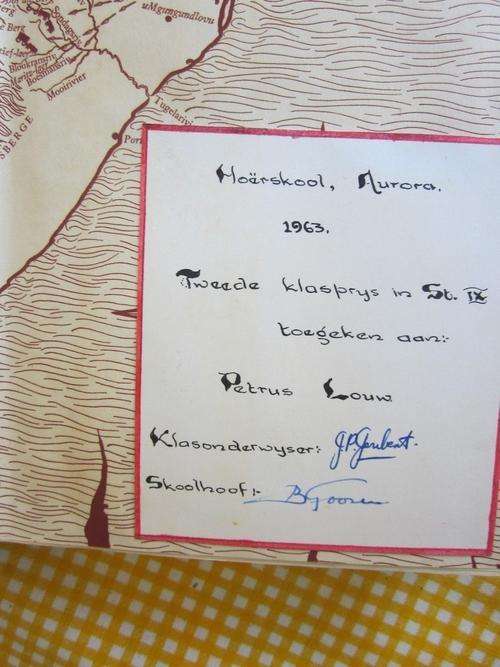 uMgungundlovu
Blookransriv
Boesmansriv
Mooirivier
Tugelarivi
SBERGE
Port
Hoërskool, Aurora.
1963.
Tweede klasprys in St. IX
toegeken aan:-
Petrus Louw
Klasonderwyser: J.P. Joubert.
Skoolhoof:-